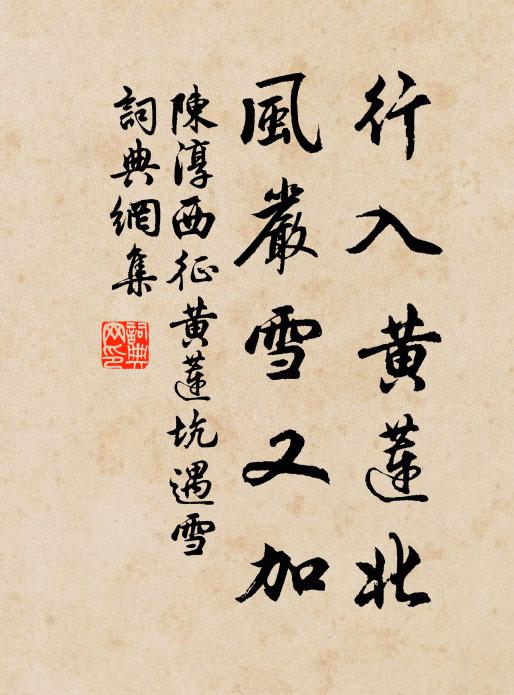 行入黄蓮北
風嚴雪又加
陳淳西征黄蓮坑遇雪
詞典網集
詞典网印